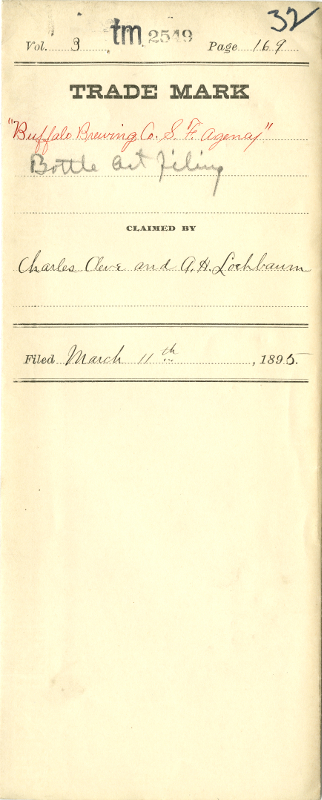 32
Vol. 3 tm 2549 Page 169
TRADE MARK
"Buffalo Brewing Co. S. F. Agency"
Bottle Act Filing
CLAIMED BY
Charles Cleve and A. H. Lochbaum
Filed March 11th, 1895.